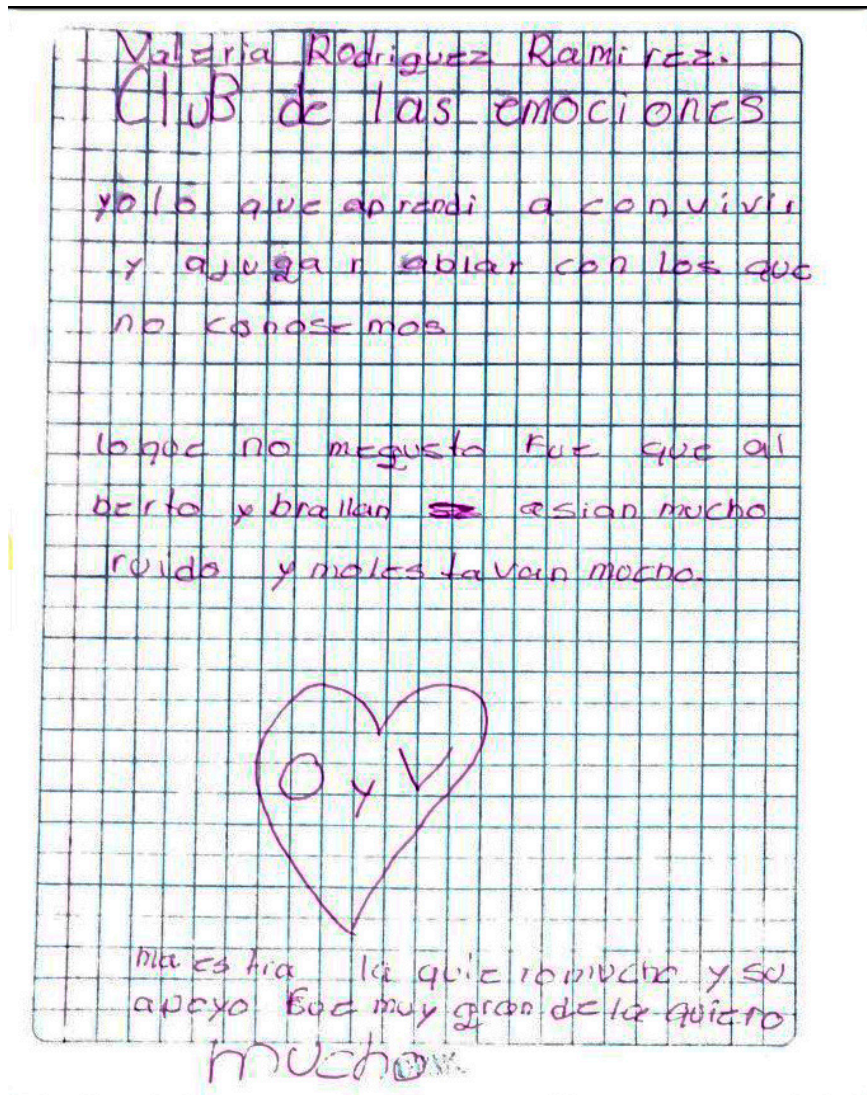 Valeria Rodriguez Ramirez.
CluB de las emociones
yolo que aprendi a convivir
y ajugar ablar con los que
no conosemos
loque no megusto Fue que al
berto y brallan asian mucho
ruido y moles tavan mocho.
O y V
maestra la quiero mucho y su
apoyo Fue muy gran de la quiero
mucho